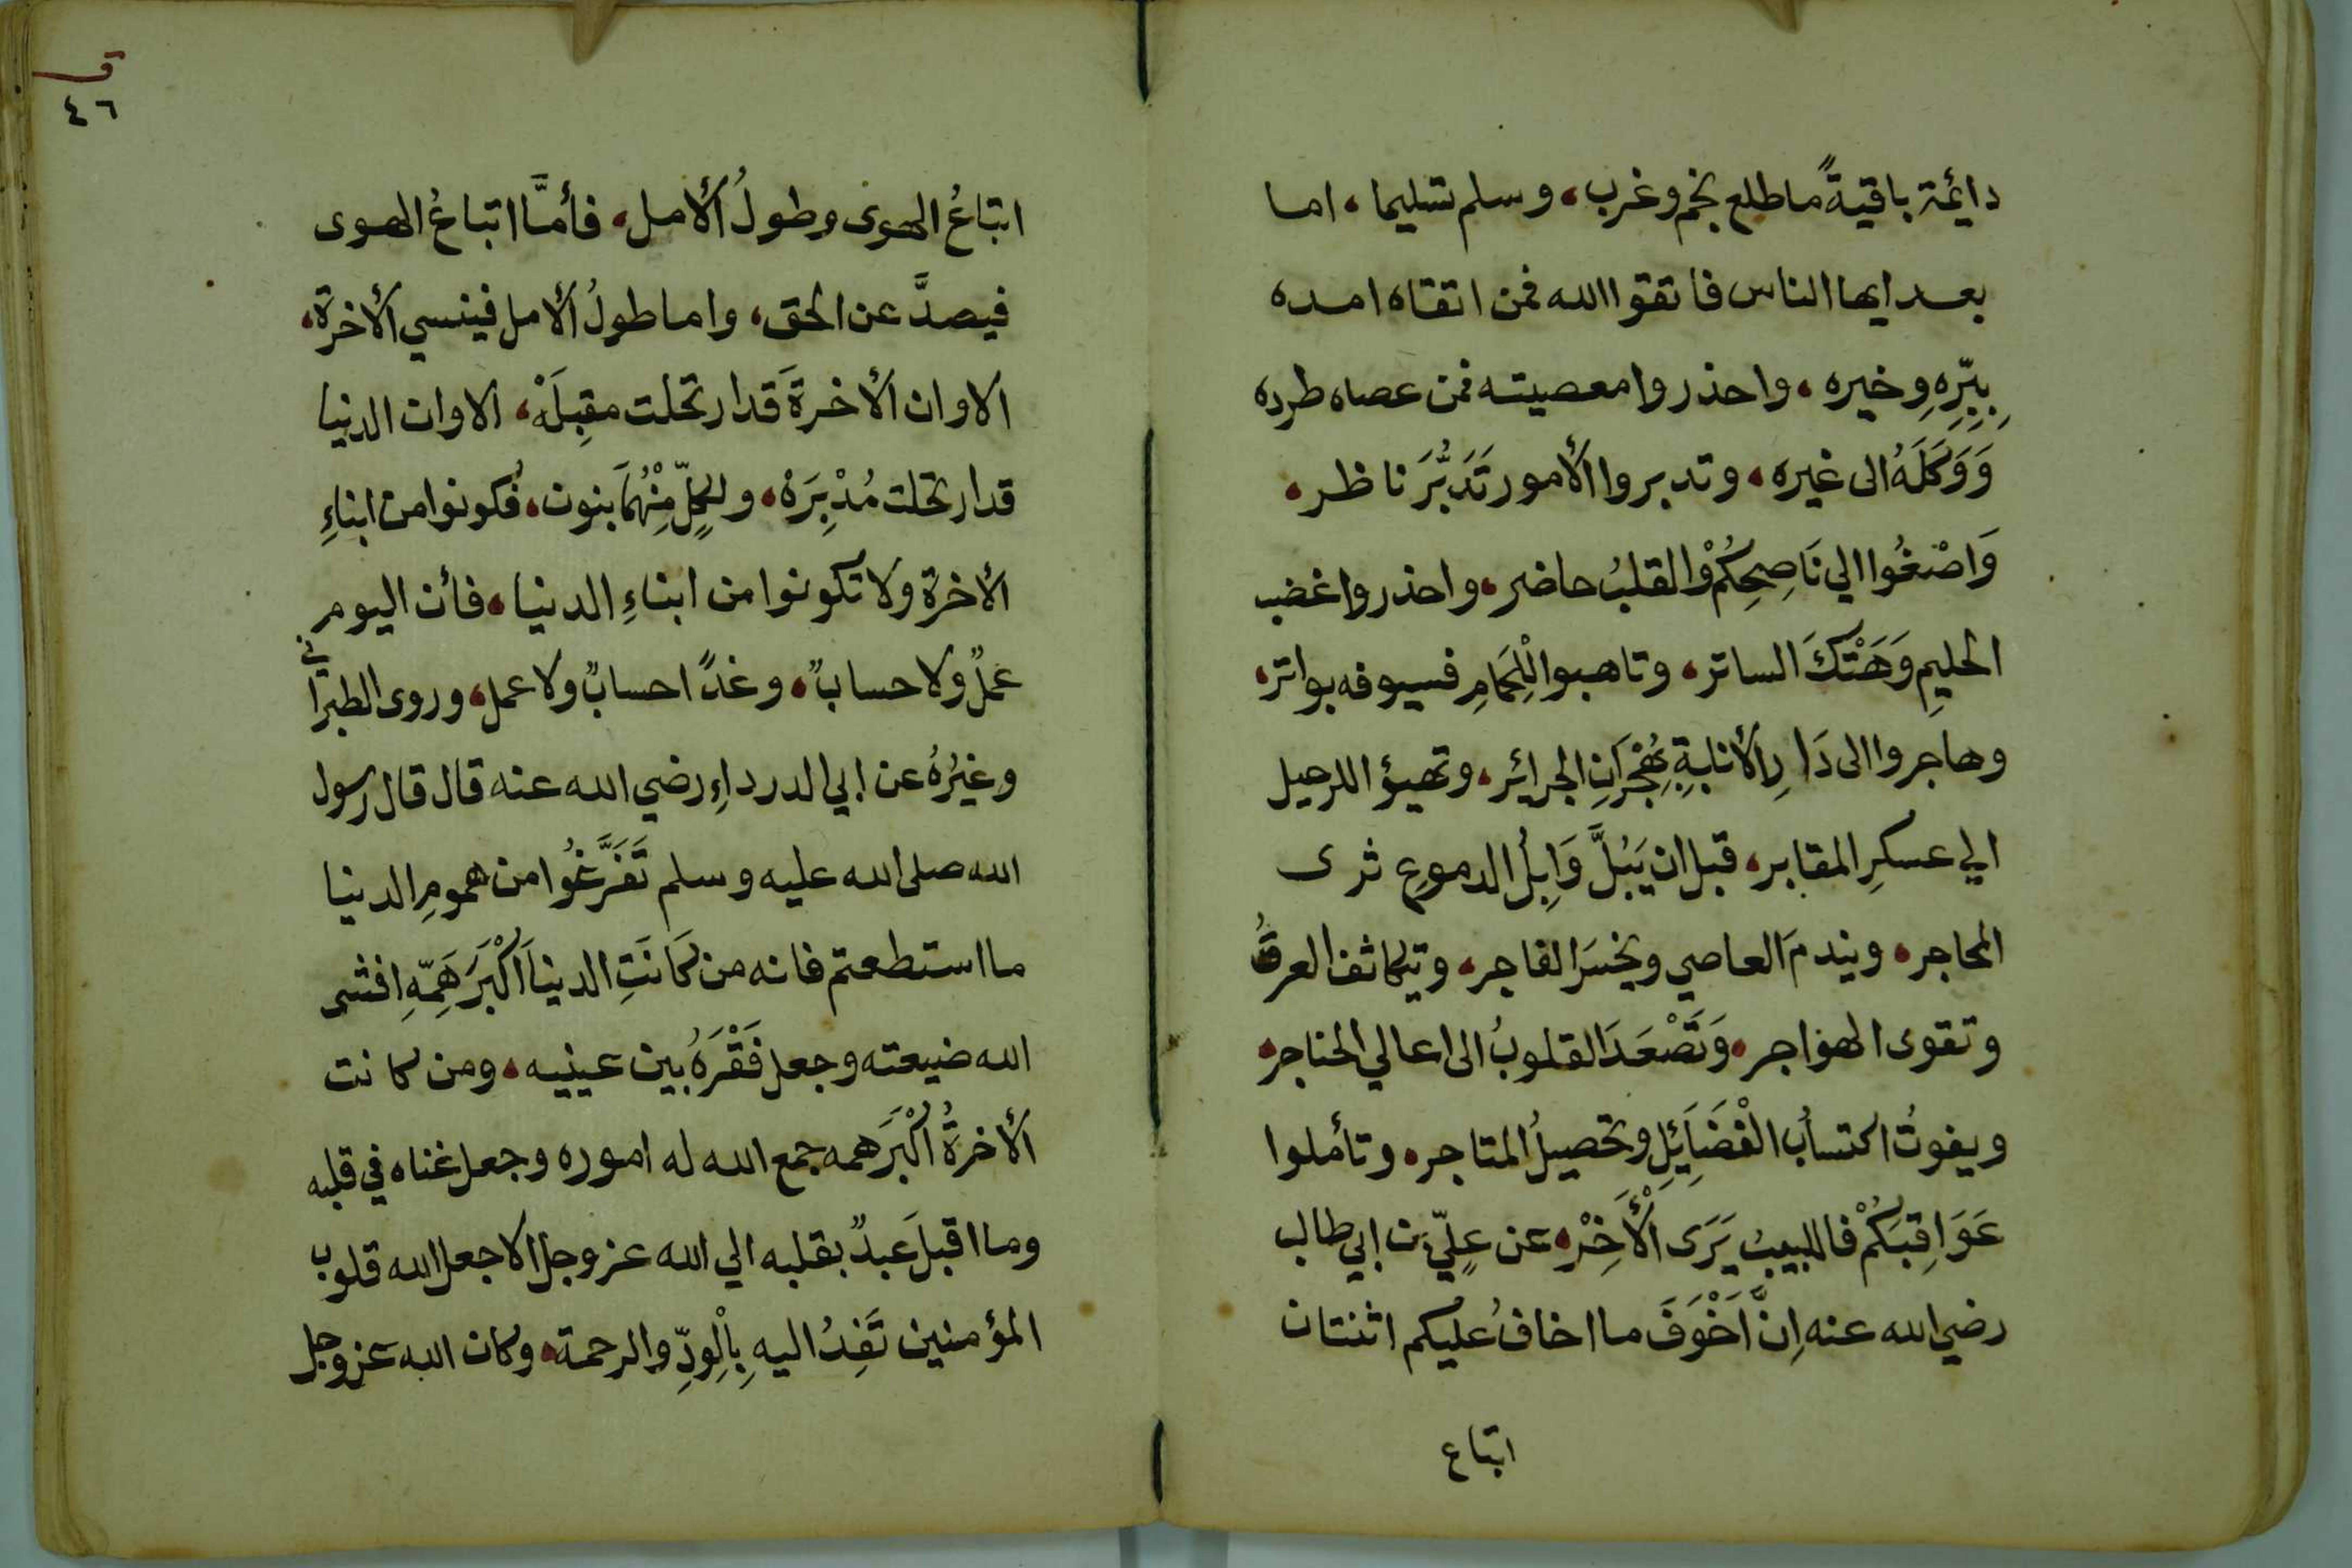 دائمة باقيةً ما طلع نجم وغرب، وسلم تسليما، اما
بعد ايها الناس فاتقوا الله فمن اتقاه امده
بِبِرِّهِ وخيره، واحذروا معصيته فمن عصاه طرده
وَوَكَلَهُ الى غيره، وتدبروا الأمور تَدَبُّرَ ناظر،
وَاصْغُوا الي نَاصِحِكُمْ والقلبُ حاضر، واحذروا غضب
الحليمِ وَهَتْكَ الساتر، وتاهبوا لِلْحَمَامِ فسيوفه بواتر،
وهاجروا الى دَارِ الأنابةِ بِهُجْرَانِ الجرائر، وتهيؤا للرحيل
الي عسكرِ المقابر، قبل ان يَبُلَّ وَابِلُ الدموعِ ثرى
المحاجر، ويندمَ العاصي ويخسَرَ الفاجر، وتيكاثف العرقُ
وتقوى الهواجر، وَتَصْعَدَ القلوبُ الى اعالي الحناجر،
ويفوتُ اكتسابُ الْفَضَائِلِ وتحصيلُ المتاجر، وتأملوا
عَوَاقِبَكُمْ فاللبيبُ يَرَى الْأَخِرْ، عن عليِّ بن ابي طالب
رضي الله عنه اِنَّ اَخْوَفَ ما اخافُ عليكم اثنتان
اتباع
ق
٤٦
اتباعُ الهوى وطولُ الأمل، فأمَّا اتباعُ الهوى
فيصدَّ عن الحق، واما طولُ الأمل فينسي الأخرة،
الا وان الأخرةَ قد ارتحلت مقبِلَهْ، الا وان الدنيا
قد ارتحلت مُدْبِرَهْ، ولكلِّ مِنْهُمَا بنون، فكونوا من ابناءِ
الأخرة ولا تكونوا من ابناءِ الدنيا، فأن اليوم
عملٌ ولا حسابٌ، وغدًا حسابٌ ولا عمل، وروى الطبراني
وغيرُهُ عن ابي الدرداءِ رضي الله عنه قال قال رسول
الله صلى الله عليه وسلم تَفَرَّغُوا من همومِ الدنيا
ما استطعتم فانه من كَانَتِ الدنيا اَكْبَرَ هَمِّهِ افشى
الله ضيعته وجعل فَقْرَهُ بين عينيه، ومن كانت
الأخرةُ اَكْبَرَ همه جمع الله له اموره وجعل غناه في قلبه
وما اقبلَ عبدٌ بقلبه الي الله عز وجل الا جعل الله قلوب
المؤمنين تَفِدُ اليهِ بِالْوِدِّ والرحمة، وكان الله عز وجل